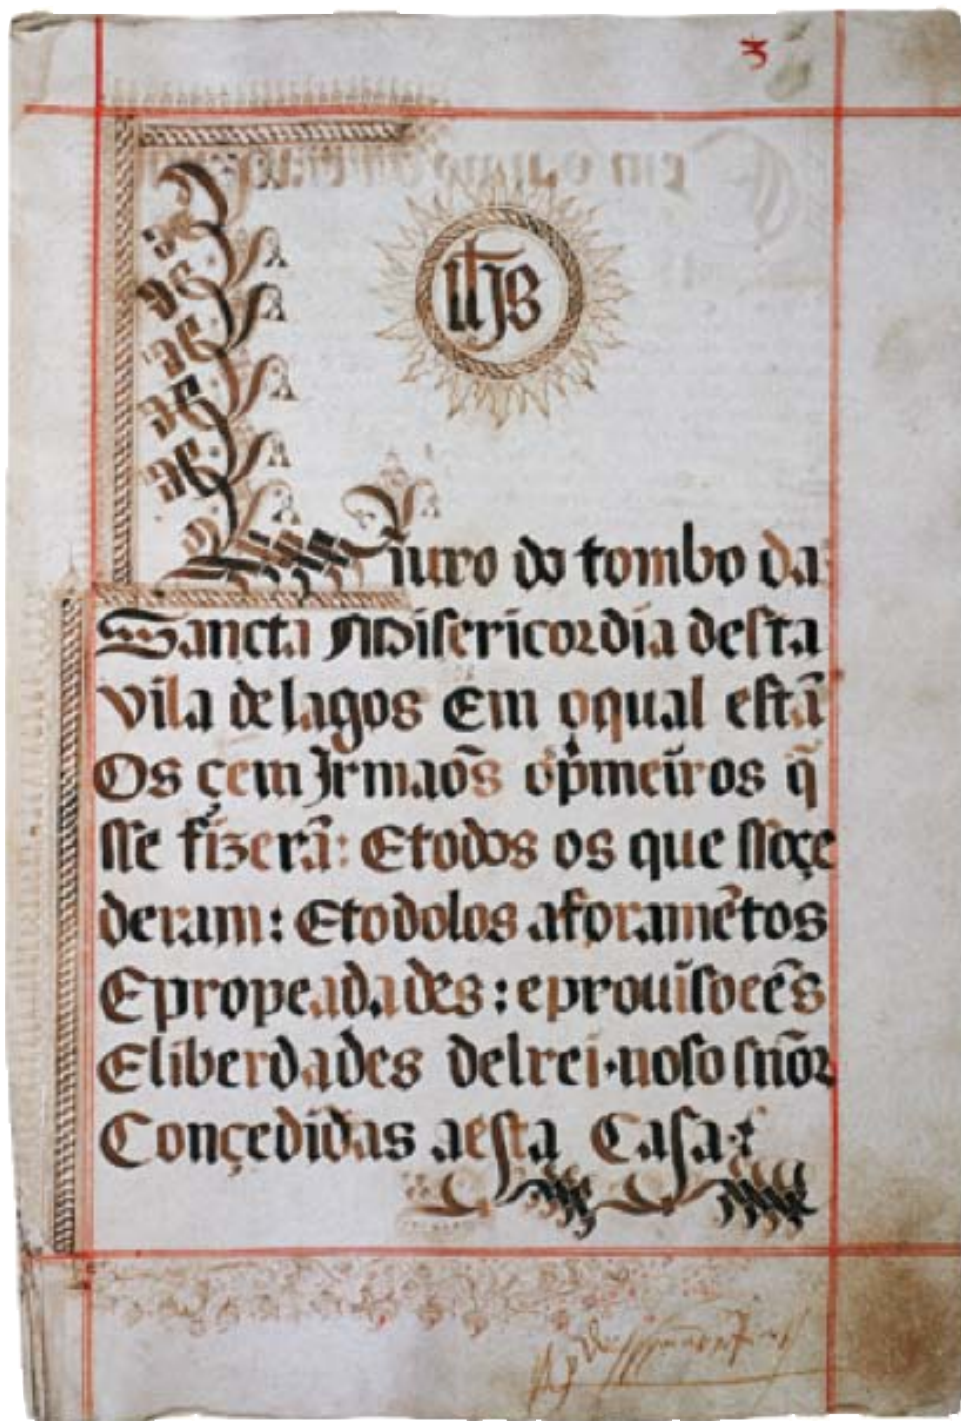 3
ihs
Liuro do tombo da
Sancta Misericordia desta
vila de lagos Em oqual estã
Os çem Irmaõs o˜s pmeiros q̃
sse fizerã: Etodos os que ssoçe
deram: Etodolos aforamẽtos
Epropeadades: eprouisoeẽs
Eliberdades delrei·noso snõr
Conçedidas aesta Casa·: